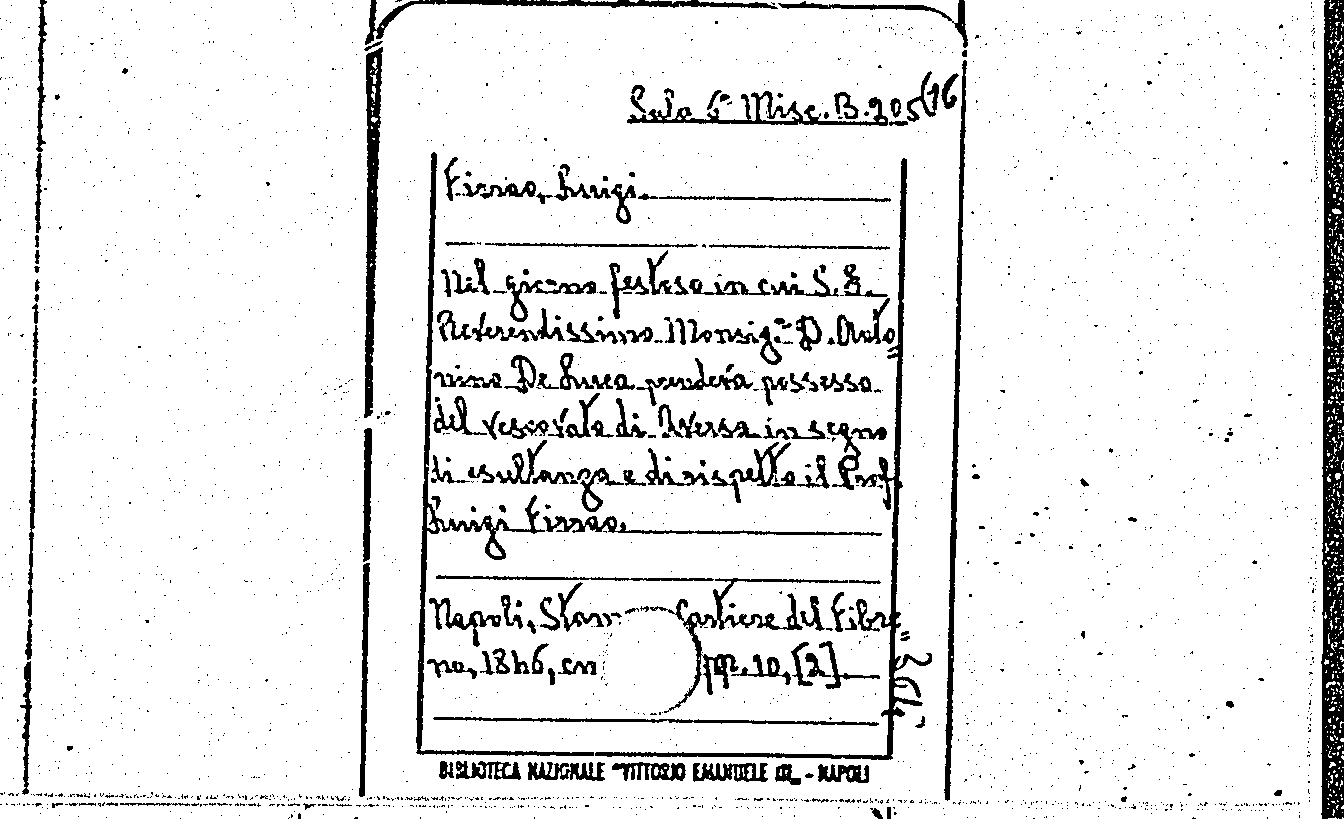 Sala 6ª Misc. B. 205(16
Firrao, Luigi.
Nel giorno festoso in cui S. E.
Reverendissimo Monsig.r D. Anto=
nino De Luca prenderà possesso
del vescovato di Aversa in segno
di esultanza e di rispetto il Prof.
Luigi Firrao.
Napoli, Stam Cartiere del Fibre=
no, 1846, cm pp. 10, [2].
BIBLIOTECA NAZIONALE "VITTORIO EMANUELE III" - NAPOLI